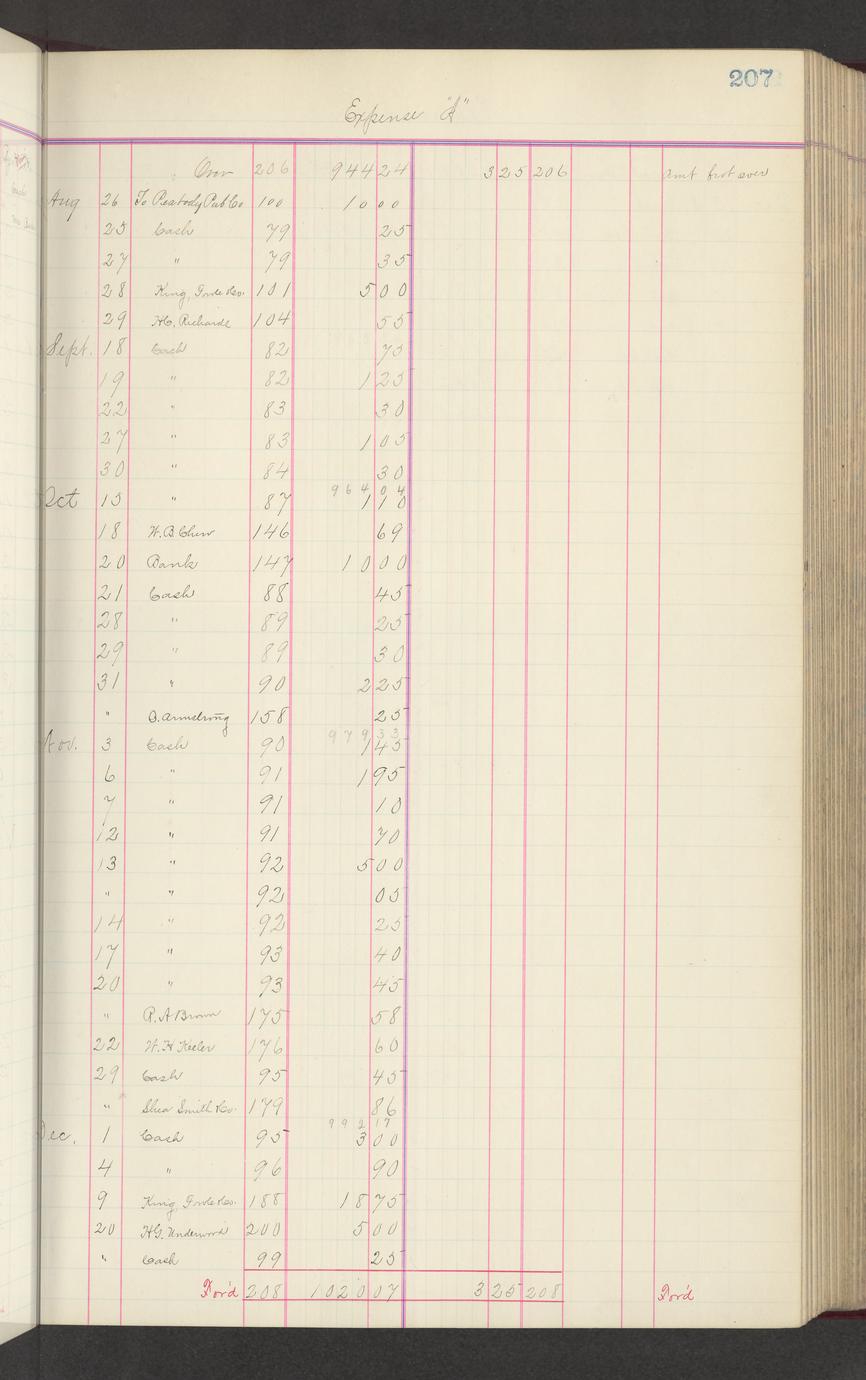 207
Expense "A"
Over 206 944 24 3 25 206 Amt brot over
Aug 26 To Peabody Pub Co 100 10 00
25 Cash 79 25
27 " 79 35
28 King, Fowle &Co. 101 5 00
29 H.C. Richards 104 55
Sept. 18 Cash 82 75
19 " 82 1 25
22 " 83 30
27 " 83 1 05
30 " 84 30
964 04
Oct 15 " 87 1 10
18 W.B. Chew 146 69
20 Bank 147 10 00
21 Cash 88 45
28 " 89 25
29 " 89 30
31 " 90 2 25
" O. Armstrong 158 25
979 33
Nov. 3 Cash 90 1 45
6 " 91 1 95
7 " 91 10
12 " 91 70
13 " 92 5 00
" " 92 05
14 " 92 25
17 " 93 40
20 " 93 45
" R.A Brown 175 58
22 W.H Keeler 176 60
29 Cash 95 45
" Shea Smith &Co. 179 86
992 17
Dec. 1 Cash 95 3 00
4 " 96 90
9 King, Fowle &Co. 188 18 75
20 H.G. Underwood 200 5 00
" Cash 99 25
For'd 208 1020 07 3 25 208 For'd